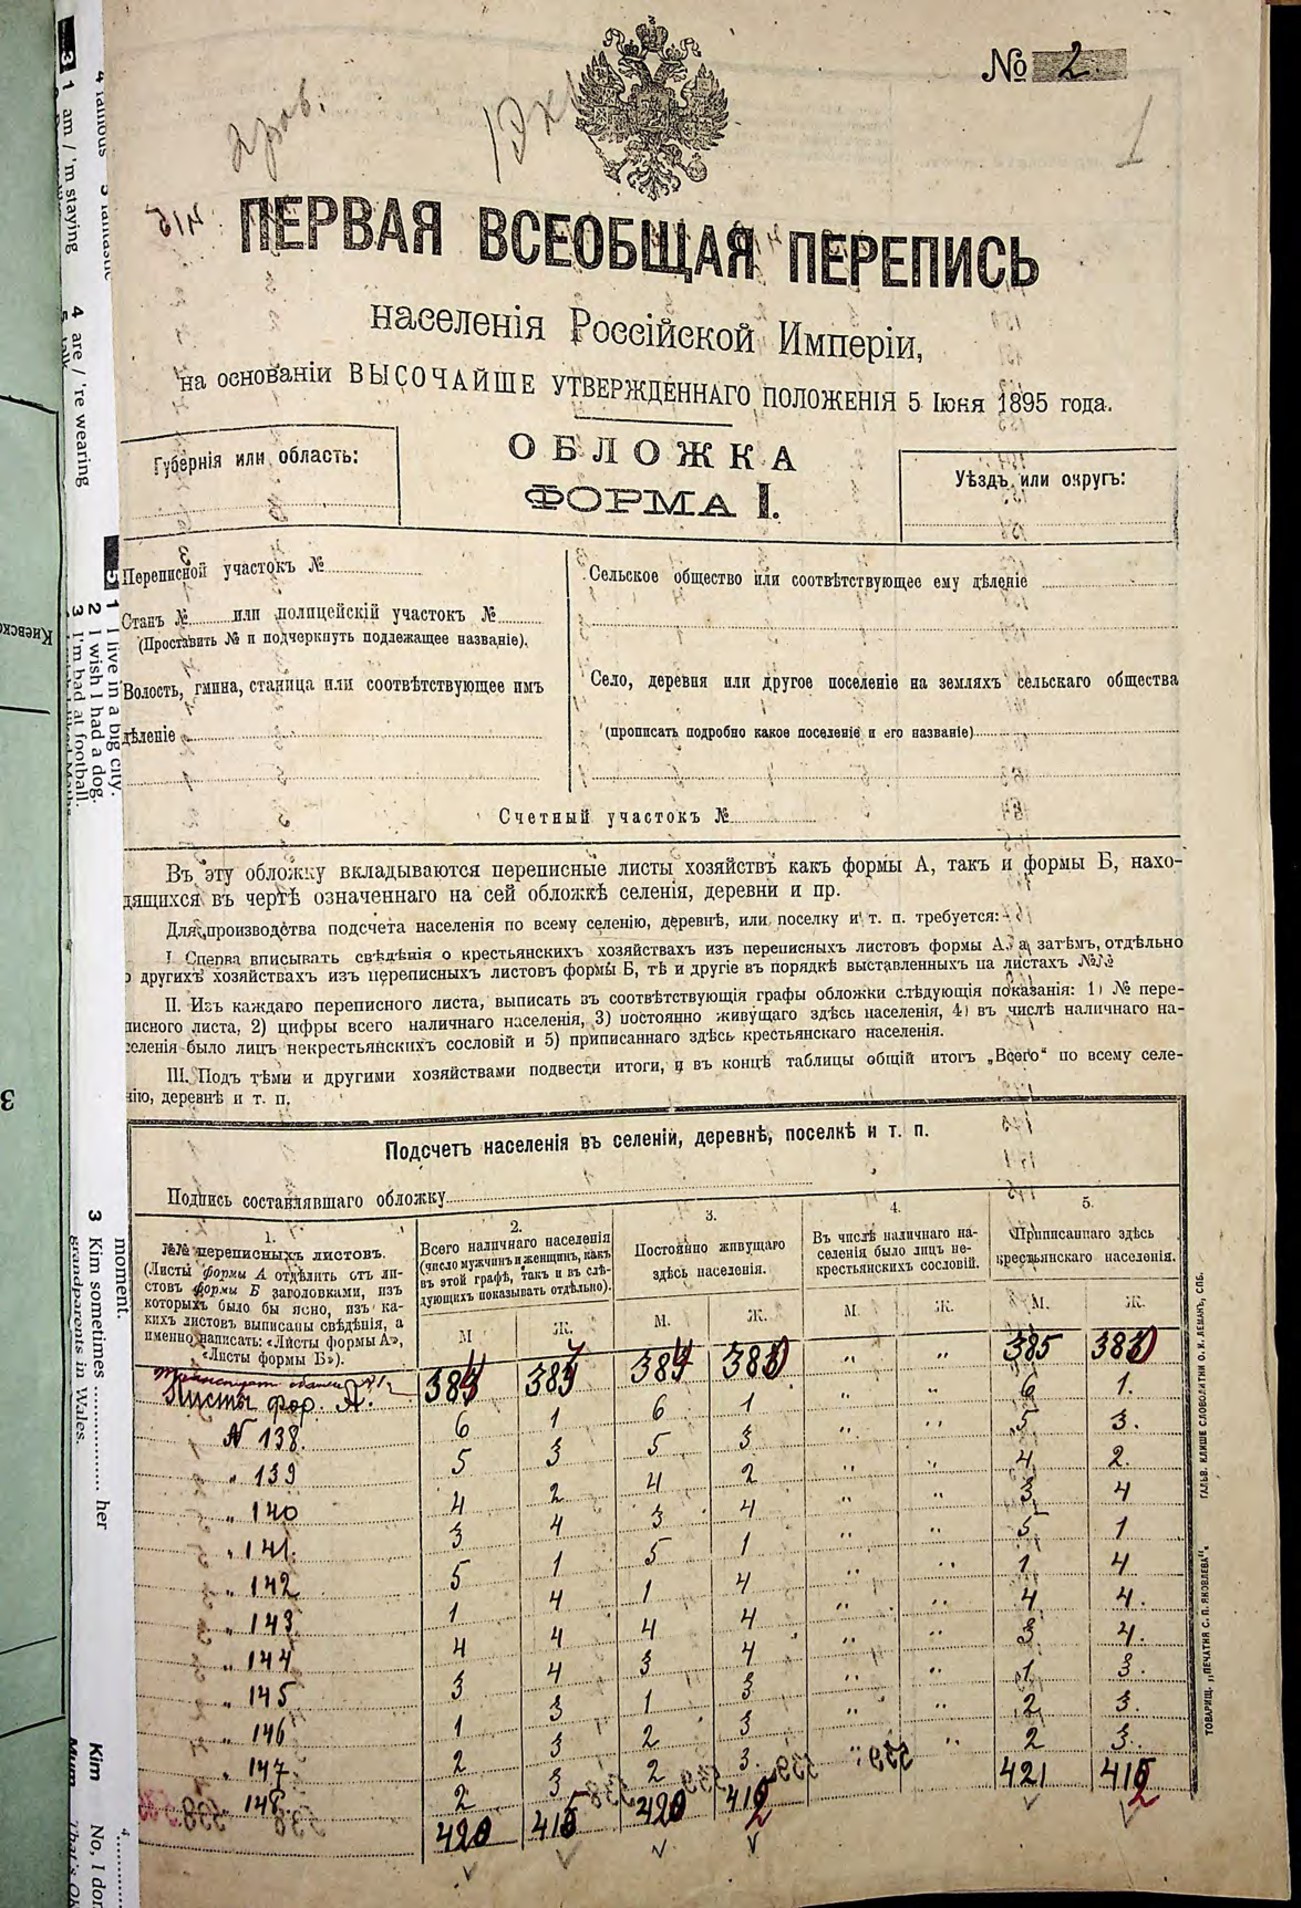 № 2.
1
ПЕРВАЯ ВСЕОБЩАЯ ПЕРЕПИСЬ
населенія Россійской Имперіи,
на основаніи ВЫСОЧАЙШЕ УТВЕРЖДЕННАГО ПОЛОЖЕНІЯ 5 Іюня 1895 года.
ОБЛОЖКА
ФОРМА I.
Губернія или область:
Уѣздъ или округъ:
Переписной участокъ №
Станъ № или полицейскій участокъ №
(Проставить № и подчеркнуть подлежащее названіе).
Волость, гмина, станица или соотвѣтствующее имъ
дѣленіе
Сельское общество или соотвѣтствующее ему дѣленіе
Село, деревня или другое поселеніе на земляхъ сельскаго общества
(прописать подробно какое поселеніе и его названіе)
Счетный участокъ №
Въ эту обложку вкладываются переписные листы хозяйствъ какъ формы А, такъ и формы Б, нахо-
дящихся въ чертѣ означеннаго на сей обложкѣ селенія, деревни и пр.
Для производства подсчета населенія по всему селенію, деревнѣ, или поселку и т. п. требуется:
I. Сперва вписывать свѣдѣнія о крестьянскихъ хозяйствахъ изъ переписныхъ листовъ формы А, а затѣмъ, отдѣльно
о другихъ хозяйствахъ изъ переписныхъ листовъ формы Б, тѣ и другіе въ порядкѣ выставленныхъ на листахъ №№
II. Изъ каждаго переписного листа, выписать въ соотвѣтствующія графы обложки слѣдующія показанія: 1) № пере-
писного листа, 2) цифры всего наличнаго населенія, 3) постоянно живущаго здѣсь населенія, 4) въ числѣ наличнаго на-
селенія было лицъ некрестьянскихъ сословій и 5) приписаннаго здѣсь крестьянскаго населенія.
III. Подъ тѣми и другими хозяйствами подвести итоги, и въ концѣ таблицы общій итогъ „Всего“ по всему селе-
нію, деревнѣ и т. п.
Подсчетъ населенія въ селеніи, деревнѣ, поселкѣ и т. п.
Подпись составлявшаго обложку
1.
№№ переписныхъ листовъ.
(Листы формы А отдѣлить отъ ли-
стовъ формы Б заголовками, изъ
которыхъ было бы ясно, изъ ка-
кихъ листовъ выписаны свѣдѣнія, а
именно написать: «Листы формы А»,
«Листы формы Б»).
2.
Всего наличнаго населенія
(число мужчинъ и женщинъ, какъ
въ этой графѣ, такъ и въ слѣ-
дующихъ показывать отдѣльно).
М
Ж.
3.
Постоянно живущаго
здѣсь населенія.
М.
Ж.
4.
Въ числѣ наличнаго на-
селенія было лицъ не-
крестьянскихъ сословій.
М.
Ж.
5.
Приписаннаго здѣсь
крестьянскаго населенія.
М.
Ж.
385
Листы фор. А.
№ 138. 6 1 6 1 „ „ 6 1.
„ 139 5 3 5 3 „ „ 5 3.
„ 140 4 2 4 2 „ „ 4 2.
„ 141. 3 4 3 4 „ „ 3 4
„ 142 5 1 5 1 „ „ 5 1
„ 143 1 4 1 4 „ „ 1 4
„ 144 4 4 4 4 „ „ 4 4.
„ 145 3 4 3 4 „ „ 3 4.
„ 146 1 3 1 3 „ „ 1 3.
„ 147 2 3 2 3 „ „ 2 3.
„ 148. 2 3 2 3. „ „ 2 3.
421
ТОВАРИЩ. „ПЕЧАТНЯ С. П. ЯКОВЛЕВА“. ГАЛЬВ. КЛИШЕ СЛОВОЛИТНИ О. И. ЛЕМАНЪ, СПБ.
3 1 am / 'm staying
4 are / 're wearing
5 1 I live in a big city.
2 I wish I had a dog.
3 I'm bad at football.
moment.
3 Kim sometimes ........ her
grandparents in Wales.
Kim No, I don
3